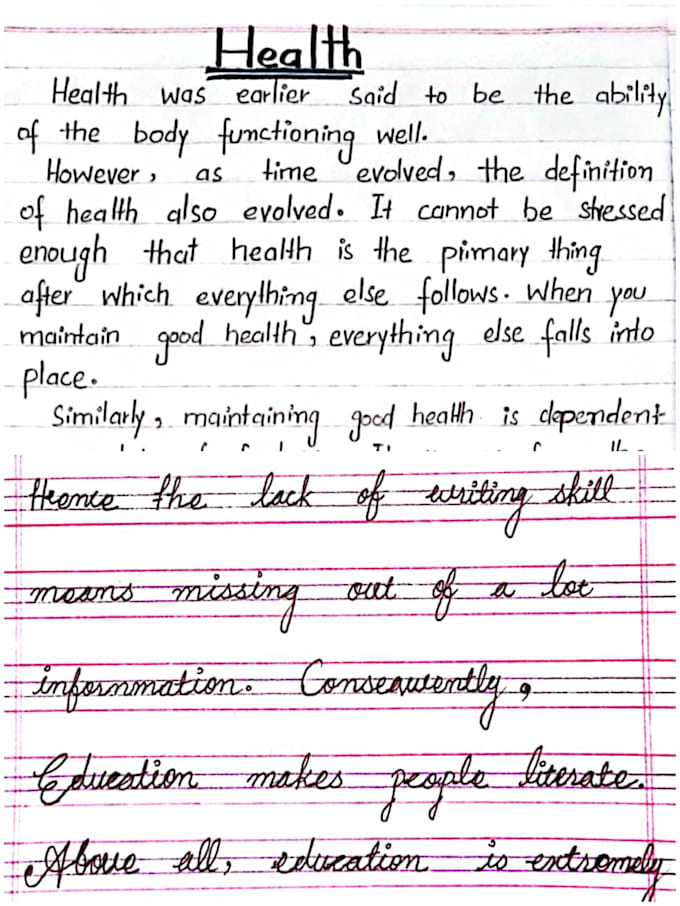 Health
Health was earlier said to be the ability
of the body functioning well.
However, as time evolved, the definition
of health also evolved. It cannot be stressed
enough that health is the primary thing
after which everything else follows. When you
maintain good health, everything else falls into
place.
Similarly, maintaining good health is dependent
Hence the lack of writing skill
means missing out of a lot
infornmation. Consequently,
Education makes people literate.
Above all, education is extremely